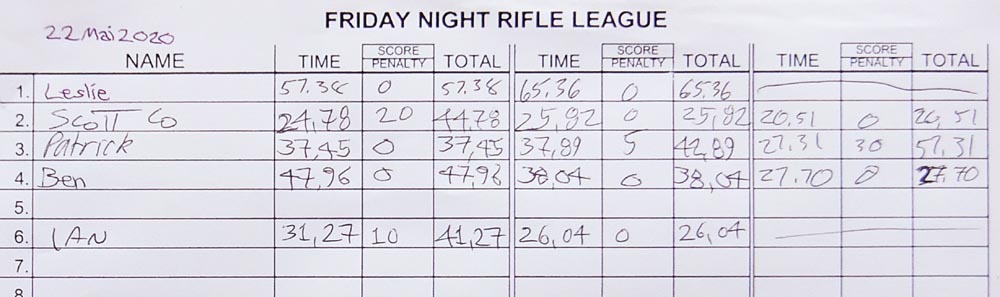 FRIDAY NIGHT RIFLE LEAGUE
22 Mai 2020
NAME TIME SCORE PENALTY TOTAL TIME SCORE PENALTY TOTAL TIME SCORE PENALTY TOTAL
1. Leslie 57.38 0 57.38 65.36 0 65.36
2. SCOTT Co 24,78 20 44,78 25,82 0 25,82 20,51 0 20,51
3. Patrick 37,45 0 37,45 37,89 5 42,89 27,31 30 57,31
4. Ben 47,96 0 47,96 38,04 0 38,04 27.70 0 27.70
5.
6. IAN 31,27 10 41,27 26,04 0 26,04
7.
8